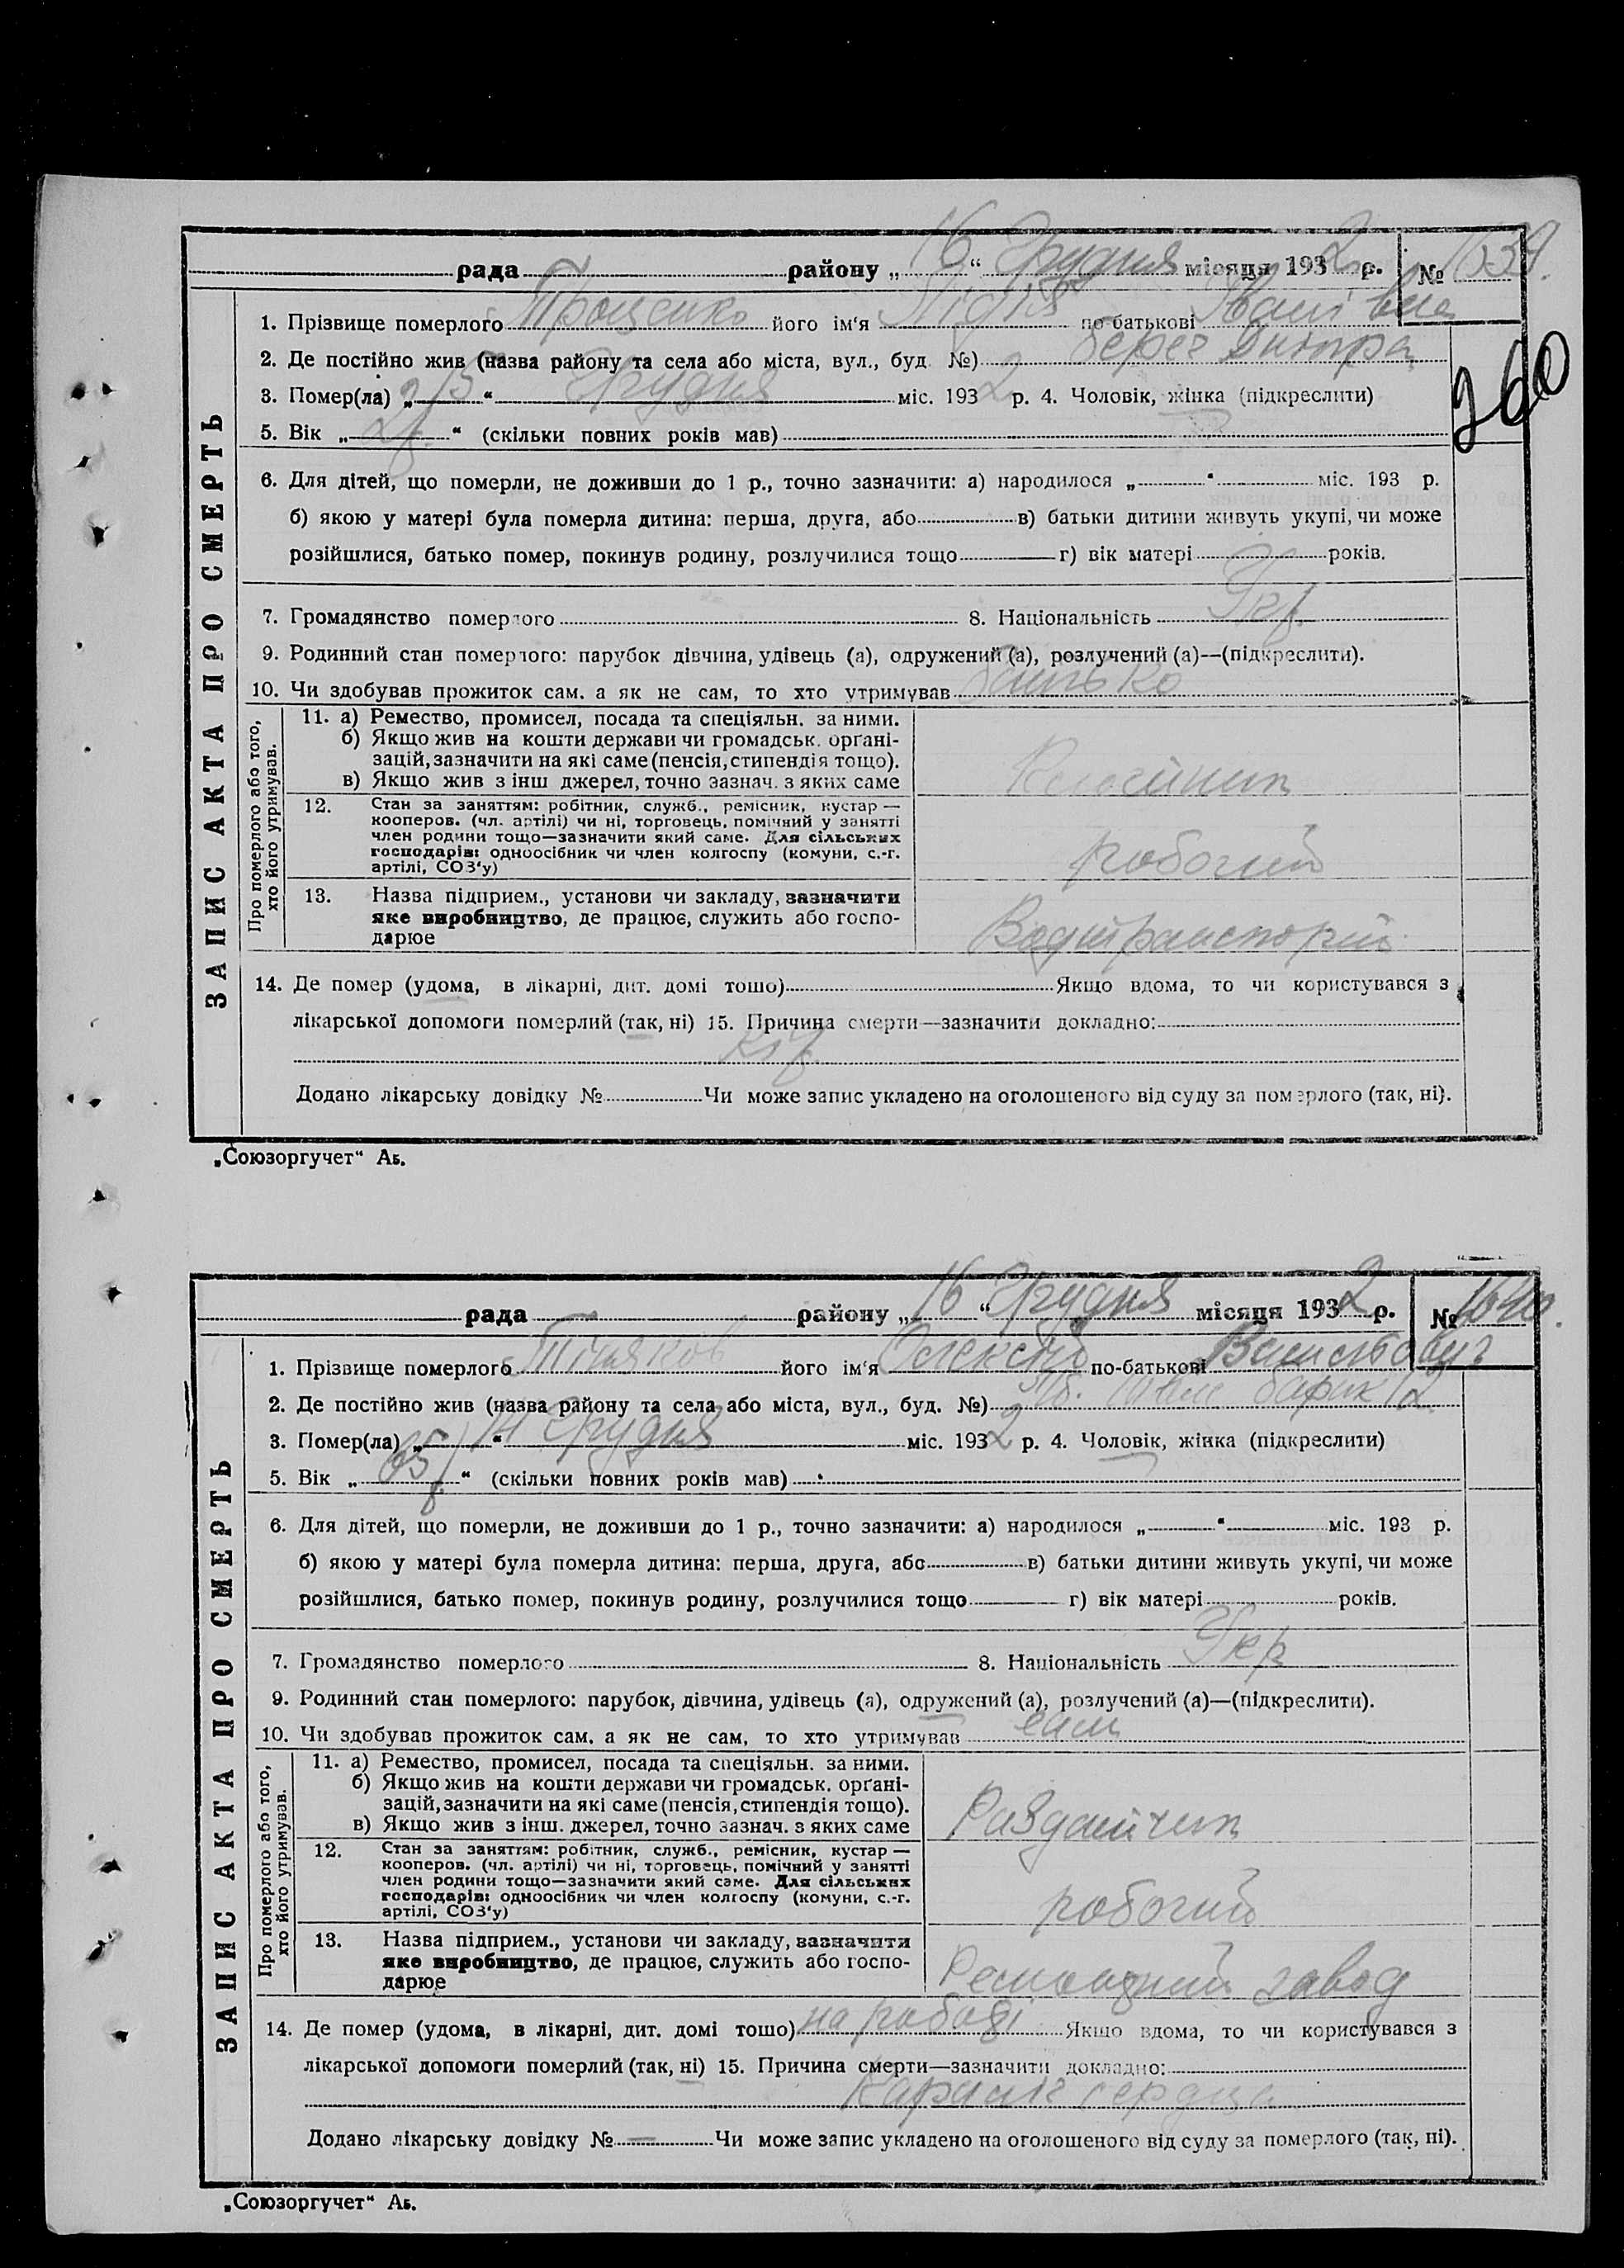 рада района „ 16 “ Грудня місяця 193 2 р. № 1639.
1. Прізвище померлого Троценко його ім‘я Лідія по батькові Іванівна
2. Де постійно жив (назва району та села або міста, вул., буд. №) берег Дніпра
3. Помер(ла) „ 15 “ Грудня міс. 193 2 р. 4. Чоловік, жінка (підкреслити)
260
5. Вік „ 2 р. “ (скільки повних років мав)
6. Для дітей, що померли, не доживши до 1 р., точно зазначити: а) народилося „ “ міс. 193 р.
б) якою у матері була померла дитина: перша, друга, або в) батьки дитини живуть укупі, чи може
розійшлися, батько помер, покинув родину, розлучилися тощо г) вік матері років.
7. Громадянство померлого 8. Національність Укр.
9. Родинний стан померлого: парубок дівчина, удівець (а), одружений (а), розлучений (а)—(підкреслити).
10. Чи здобував прожиток сам. а як не сам, то хто утримував батько
ЗАПИС АКТА ПРО СМЕРТЬ
Про померлого або того,
хто його утримував.
11. а) Ремество, промисел, посада та спеціяльн. за ними.
б) Якщо жив на кошти держави чи громадськ. орґані-
зацій, зазначити на які саме (пенсія, стипендія тощо).
в) Якщо жив з інш джерел, точно зазнач. з яких саме
12. Стан за заняттям: робітник, служб., ремісник, кустар —
кооперов. (чл. артілі) чи ні, торговець, помічний у занятті
член родини тощо—зазначити який саме. Для сільських
господарів: одноосібник чи член колгоспу (комуни, с.-г.
артілі, СОЗ‘у)
робочий
13. Назва підприєм., установи чи закладу, зазначити
яке виробництво, де працює, служить або госпо-
дарює
Водтранспорт
14. Де помер (удома, в лікарні, дит. домі тощо) Якщо вдома, то чи користувався з
лікарської допомоги померлий (так, ні) 15. Причина смерти—зазначити докладно:
Додано лікарську довідку № Чи може запис укладено на оголошеного від суду за померлого (так, ні).
„Союзоргучет“ Аь.
рада району „ 16 “ Грудня місяця 193 2 р. № 1640.
1. Прізвище померлого його ім‘я Олексій по-батькові Васильович
2. Де постійно жив (назва району та села або міста, вул., буд. №) барак 12
3. Помер(ла) „ 14 “ Грудня міс. 193 2 р. 4. Чоловік, жінка (підкреслити)
5. Вік „ 65 р. “ (скільки повних років мав)
6. Для дітей, що померли, не доживши до 1 р., точно зазначити: а) народилося „ “ міс. 193 р.
б) якою у матері була померла дитина: перша, друга, або в) батьки дитини живуть укупі, чи може
розійшлися, батько помер, покинув родину, розлучилися тощо г) вік матері років.
7. Громадянство померлого 8. Національність Укр
9. Родинний стан померлого: парубок, дівчина, удівець (а), одружений (а), розлучений (а)—(підкреслити).
10. Чи здобував прожиток сам. а як не сам, то хто утримував сам
ЗАПИС АКТА ПРО СМЕРТЬ
Про померлого або того,
хто його утримував.
11. а) Ремество, промисел, посада та спеціяльн. за ними.
б) Якщо жив на кошти держави чи громадськ. орґані-
зацій, зазначити на які саме (пенсія, стипендія тощо).
в) Якщо жив з інш. джерел, точно зазнач. з яких саме
Раздатчик
12. Стан за заняттям: робітник, служб., ремісник, кустар —
кооперов. (чл. артілі) чи ні, торговець, помічний у занятті
член родини тощо—зазначити який саме. Для сільських
господарів: одноосібник чи член колгоспу (комуни, с.-г.
артілі, СОЗ‘у)
робочий
13. Назва підприєм., установи чи закладу, зазначити
яке виробництво, де працює, служить або госпо-
дарює
завод
14. Де помер (удома, в лікарні, дит. домі тощо) на роботі Якщо вдома, то чи користувався з
лікарської допомоги померлий (так, ні) 15. Причина смерти—зазначити докладно:
Параліч сердца
Додано лікарську довідку № — Чи може запис укладено на оголошеного від суду за померлого (так, ні).
„Союзоргучет“ Аь.